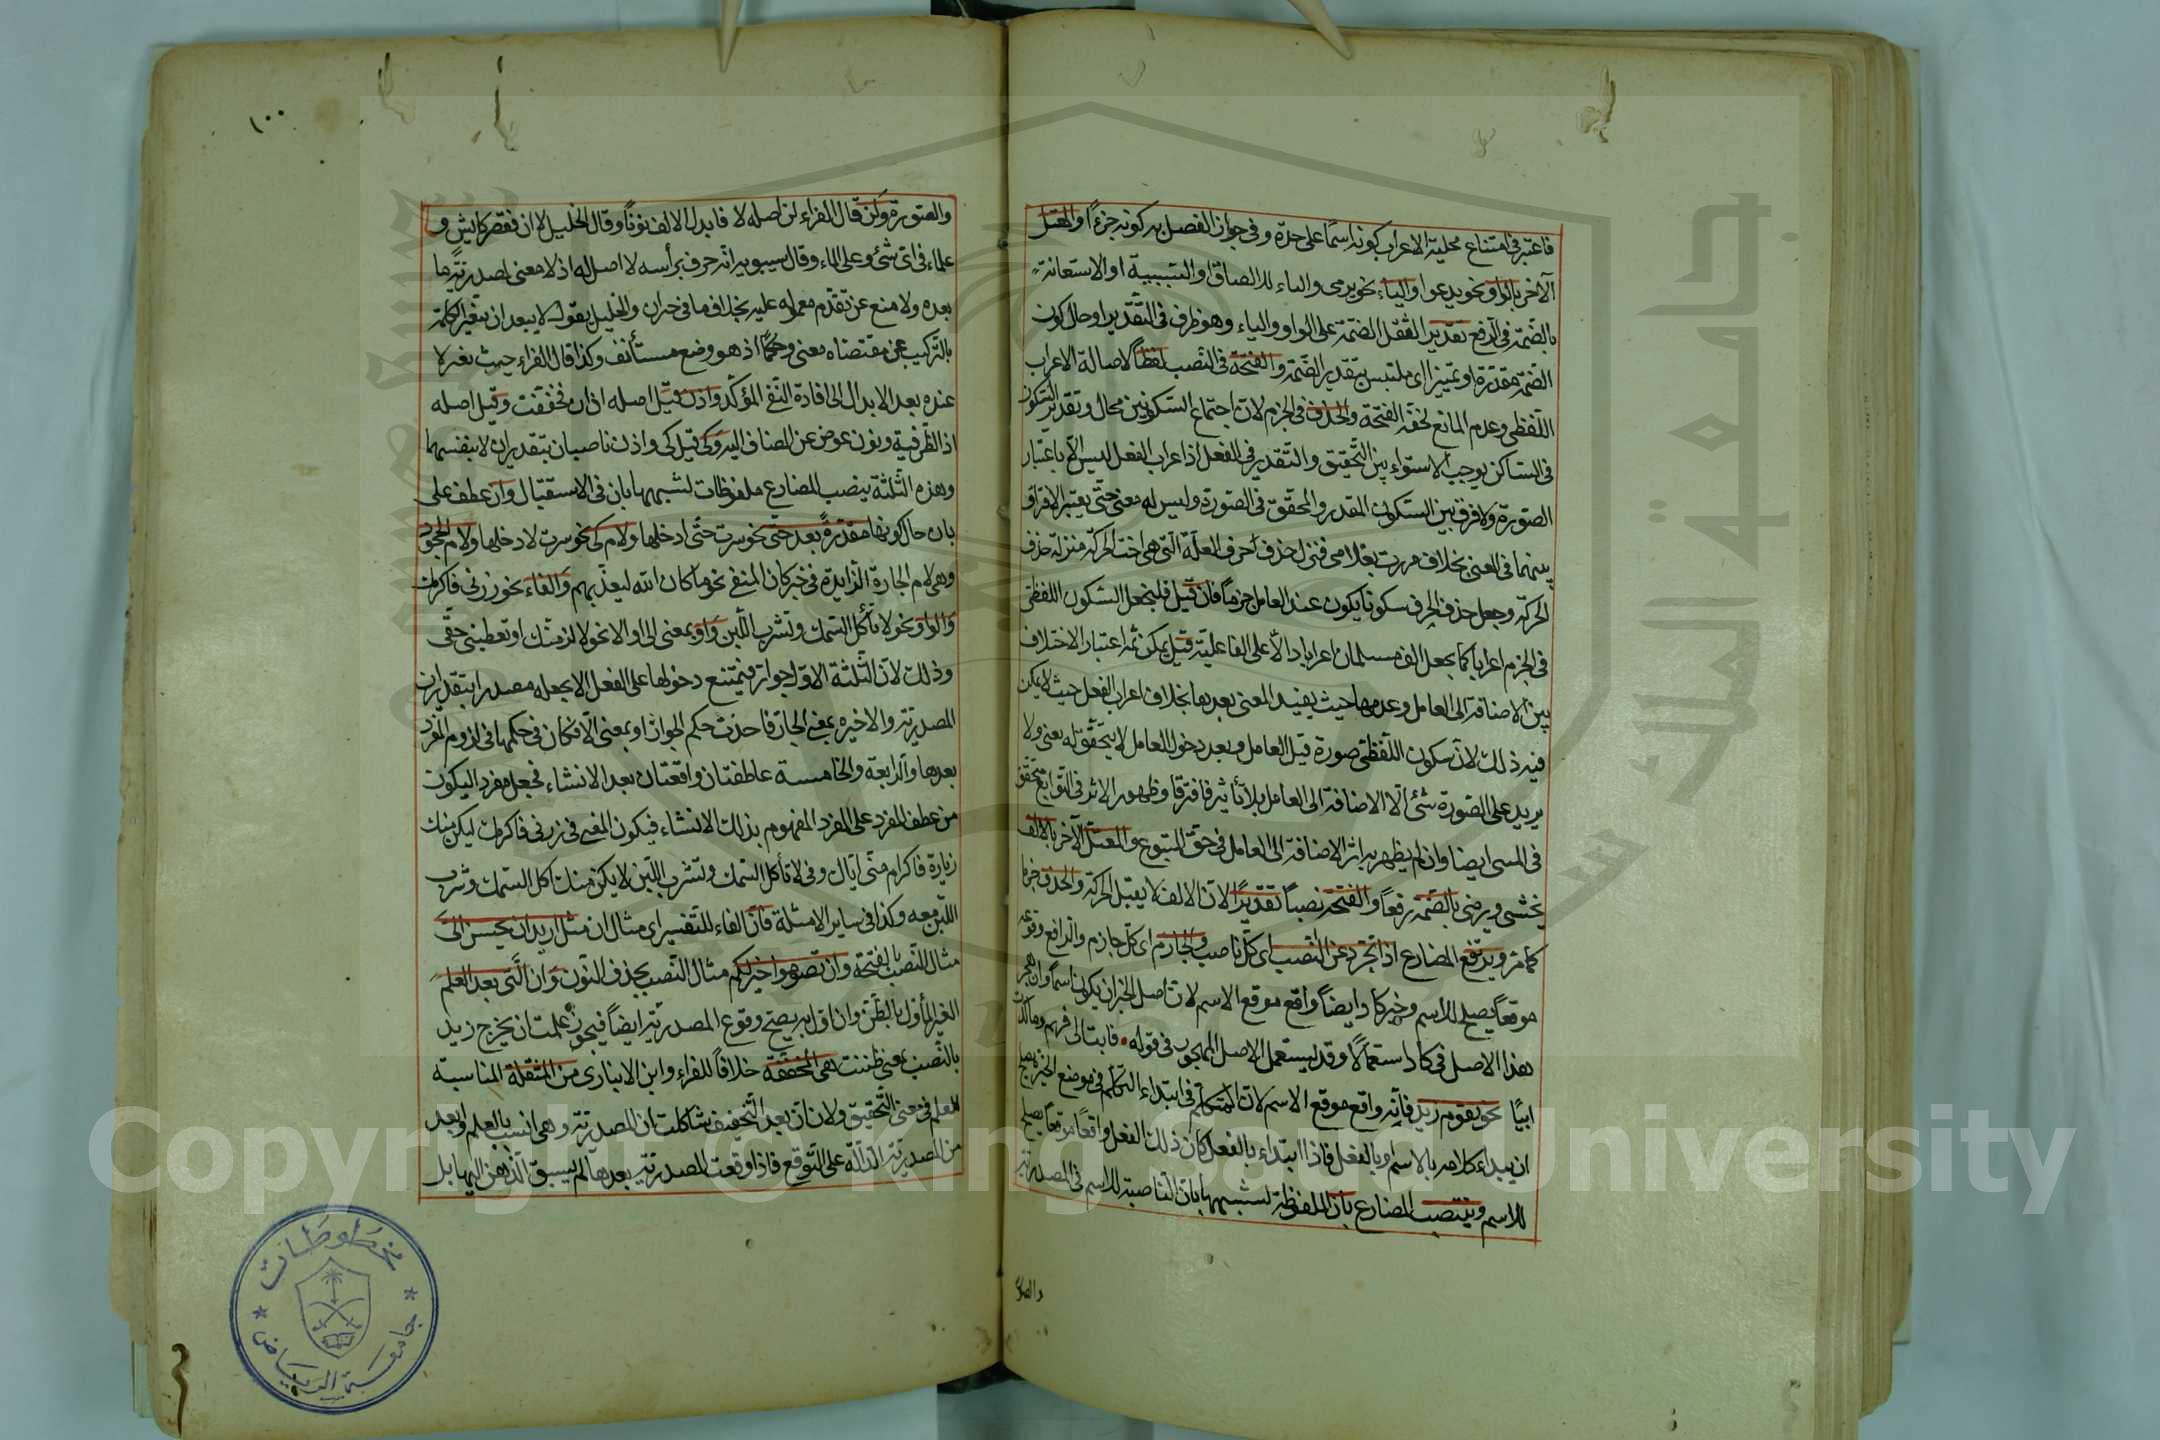 فاعتبر في امتناع محلية الاعراب كونه اسما على حدة وفي جواز الفصل به كونه جزءا والمعتل
الآخر بالواو نحو يدعو او الياء نحو يرمي والباء للالصاق او السببية او الاستعانة
بالضمة في الرفع تقديرا لثقل الضمة على الواو والياء وهو ظرف في التقدير او حال كون
الضمة مقدرة او تمييز اي ملتبس بتقدير الضمة والفتحة في النصب لفظا لاصالة الاعراب
اللفظي وعدم المانع لخفة الفتحة والحذف في الجزم لان اجتماع السكونين محال وتقدير السكون
في الساكن يوجب الاستواء بين التحقيق والتقدير في الفعل اذ اعراب الفعل ليس الا باعتبار
الصورة ولا فرق بين السكون المقدر والمحقق في الصورة وليس له معنى حتى يعتبر الافراق
بينهما في المعنى بخلاف مررت بغلامي فنزل حذف احرف العلة التي هي اخت الحركة منزلة حذف
الحركة وجعل حذف الحرف سكونا يكون عند العامل جزما فان قيل فلم يجعل السكون اللفظي
في الجزم اعرابا كما يجعل الف مسلمان اعرابا دالا على الفاعلية قيل يمكن ثمه اعتبار الاختلاف
بين الاضافة الى العامل وعدمها حيث يفيد المعنى بعدها بخلاف اعراب الفعل حيث لا يمكن
فيه ذلك لان سكون اللفظي صورة قبل العامل وبعد دخول العامل لا يتحقق له معنى ولا
يزيد على الصورة شئ الا الاضافة الى العامل بلا تأثير فافترقا وظهور الاثر في التوابع يتحقق
في المبنى ايضا وان لم يظهر به اثر الاضافة الى العامل في حق المتبوع والمعتل الآخر بالالف
نحو يخشى ويرضى بالضمة رفعا والفتحة نصبا تقديرا لان الالف لا يقبل الحركة والحذف جزما
كما مر ويرتفع المضارع اذا تجرد عن النصب اي كل ناصب والجازم اي كل جازم والرافع وقوعه
موقعا يصلح للاسم وخبر كاد ايضا واقع موقع الاسم لان اصل الخبر ان يكون اسما وان هجر
هذا الاصل في كاد استعمالا وقد يستعمل الاصل المهجور في قوله فابت الى فهم وما كدت
ايبا نحو يقوم زيد فانه واقع موقع الاسم لان المتكلم في ابتداء التكلم في موضع الخيرة يصلح
ان يبداء كلامه بالاسم وبالفعل فاذا ابتداء بالفعل كان ذلك الفعل واقعا موقعا يصلح
للاسم وينتصب المضارع بان الملفوظة لشبهها بان الناصبة للاسم في المصدرية
والصورة
١٠٠
والصورة ولن قال الفراء لن اصله لا فابدل الالف نونا وقال الخليل لا ان فقصر كايش و
علماء في اي شئ وعلى الماء وقال سيبويه انه حرف برأسه لا اصل له اذ لا معنى لمصدرية ما
بعده ولا منع عن تقدم معموله عليه بخلاف ما في حيز ان والخليل يقول لا يبعد ان يتغير الكلمة
بالتركيب عن مقتضاه معنى وحكما اذ هو وضع مستأنف وكذا قال الفراء حيث يغير لا
عنده بعد الابدال الى افادة النفي المؤكد واذن قيل اصله اذ ان فخففت وقيل اصله
اذ الظرفية ونون عوض عن المضاف اليه وكي قيل كي واذن ناصبان بتقدير ان لا بنفسهما
وهذه الثلثة ينصب المضارع ملفوظات لشبهها بان في الاستقبال وان عطف على
بان حال كونها مقدرة بعد حتى نحو سرت حتى ادخلها ولام كي نحو سرت لادخلها ولام الجحود
وهي لام الجارة الزايدة في خبر كان المنفي نحو ما كان الله ليعذبهم والفاء نحو زرني فاكرمك
والواو نحو لا تأكل السمك وتشرب اللبن واو بمعنى الى او الا نحو لالزمنك او تعطيني حقي
وذلك لان الثلثة الاول جوار فيمتنع دخولها على الفعل الا بجعله مصدرا بتقدير ان
المصدرية والاخيرة بمعنى الجار فاخذت حكم الجوار او بمعنى الا فكان في حكمها في لزوم المفرد
بعدها والرابعة والخامسة عاطفتان واقعتان بعد الانشاء فجعل مفردا ليكون
من عطف المفرد على المفرد المفهوم بذلك الانشاء فيكون المعنى في زرني فاكرمك ليكن منك
زيارة فاكرام مني اياك وفي لا تأكل السمك وتشرب اللبن لا يكن منك اكل السمك وشرب
اللبن معه وكذا في ساير الامثلة فان الفاء للتفسير اي مثال ان مثل اريد ان يحسن الي
مثال النصب بالفتحة وان تصوموا خير لكم مثال النصب بحذف النون وان التي بعد العلم
الغير المأول بالظن وان اول به يصح وقوع المصدرية ايضا فيجوز علمت ان يخرج زيد
بالنصب بمعنى ظننت هي المخففة خلافا للفراء وابن الانباري من المثقلة المناسبة
للعلم في معنى التحقيق ولان ان بعد التخفيف شاكلت ان المصدرية وهي انسب بالعلم وابعد
من المصدرية الدالة على التوقع فاذا وقعت المصدرية بعدها لم يسبق الذهن اليها بل
مخطوطات
جامعة الرياض
جامعة الملك سعود
Copyright © King Saud University